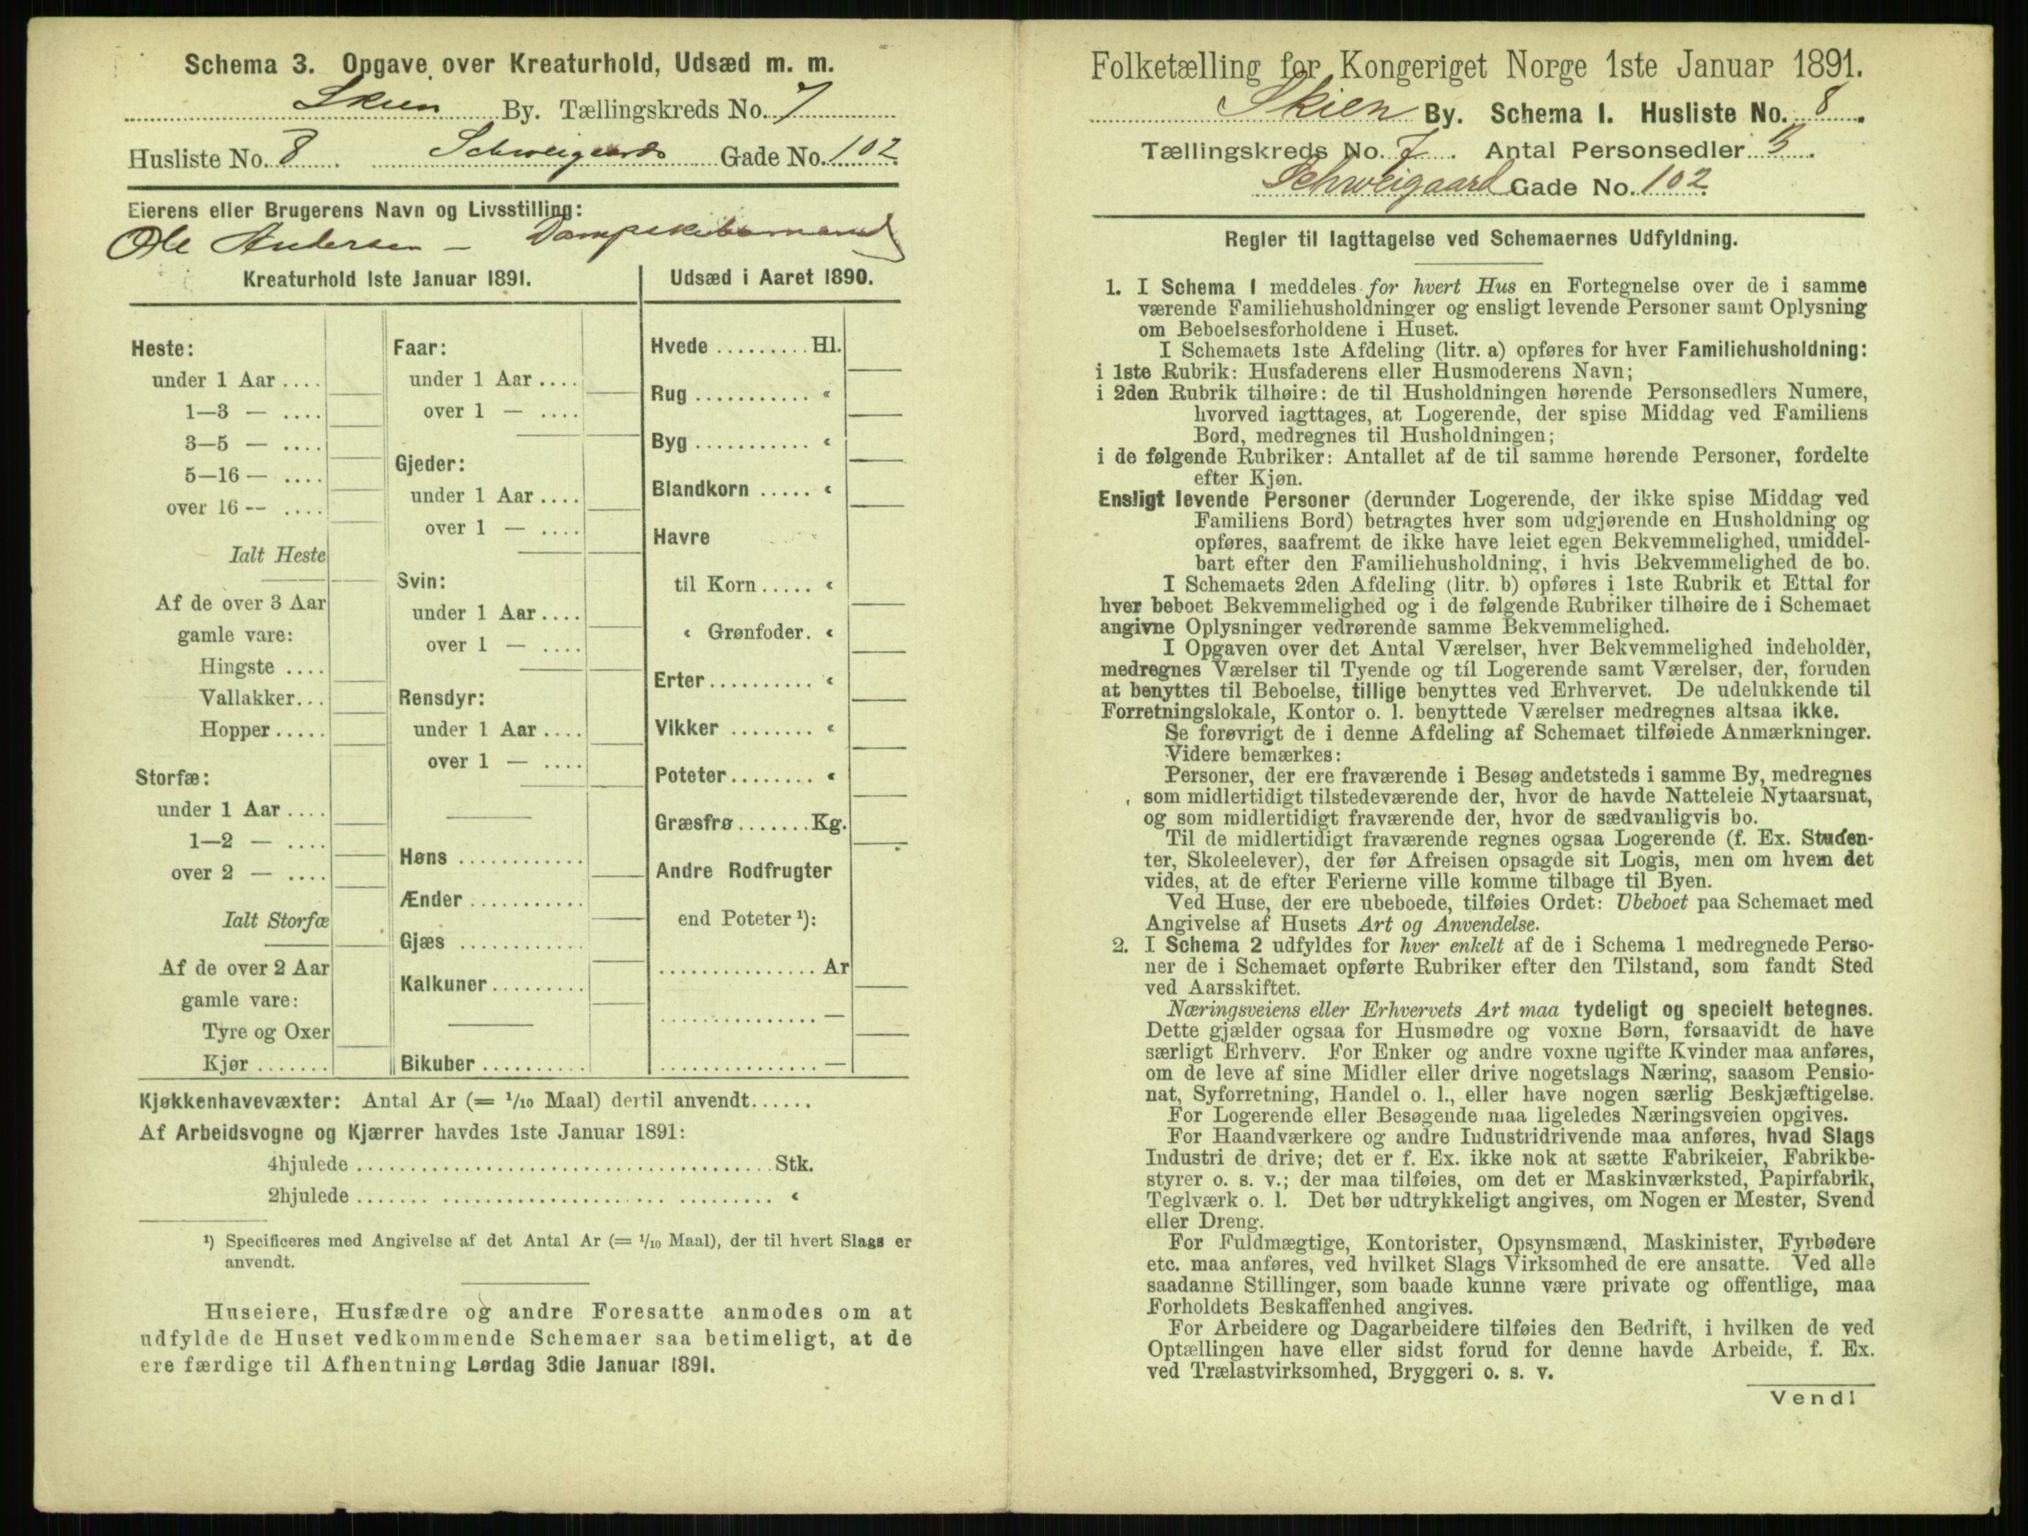 Schema 3. Opgave over Kreaturhold, Udsæd m. m.
Skien By. Tællingskreds No. 7
Husliste No. 8. Schweigaards Gade No. 102
Eierens eller Brugerens Navn og Livsstilling:
Ole Andersen – Dampskibsmand
Kreaturhold 1ste Januar 1891.
Heste:
under 1 Aar ....
1—3 — ....
3—5 — ....
5—16 — ....
over 16 -- ....
Ialt Heste
Af de over 3 Aar
gamle vare:
Hingste ....
Vallakker...
Hopper.....
Storfæ:
under 1 Aar ....
1—2 — ....
over 2 — ....
Ialt Storfæ
Af de over 2 Aar
gamle vare:
Tyre og Oxer
Kjør .......
Faar:
under 1 Aar ....
over 1 — ....
Gjeder:
under 1 Aar ....
over 1 — ....
Svin:
under 1 Aar ....
over 1 — ....
Rensdyr:
under 1 Aar ....
over 1 — ....
Høns ............
Ænder ...........
Gjæs ............
Kalkuner.........
Bikuber ..........
Udsæd i Aaret 1890.
Hvede .........Hl.
Rug ........... «
Byg ........... «
Blandkorn ..... «
Havre
til Korn..... «
« Grønfoder. «
Erter.......... «
Vikker ........ «
Poteter........ «
Græsfrø.......Kg.
Andre Rodfrugter
end Poteter ¹):
............... Ar
............... —
............... —
Kjøkkenhavevæxter: Antal Ar (= 1/10 Maal) dertil anvendt......
Af Arbeidsvogne og Kjærrer havdes 1ste Januar 1891:
4hjulede ........................................Stk.
2hjulede ....... ...................... ......... «
¹) Specificeres med Angivelse af det Antal Ar (= 1/10 Maal), der til hvert Slags er
anvendt.
Huseiere, Husfædre og andre Foresatte anmodes om at
udfylde de Huset vedkommende Schemaer saa betimeligt, at de
ere færdige til Afhentning Lørdag 3die Januar 1891.
Folketælling for Kongeriget Norge 1ste Januar 1891.
Skien By. Schema 1. Husliste No. 8.
Tællingskreds No. 7. Antal Personsedler 3.
Schweigaard Gade No. 102
Regler til Iagttagelse ved Schemaernes Udfyldning.
1. I Schema 1 meddeles for hvert Hus en Fortegnelse over de i samme
værende Familiehusholdninger og ensligt levende Personer samt Oplysning
om Beboelsesforholdene i Huset.
I Schemaets 1ste Afdeling (litr. a) opføres for hver Familiehusholdning:
i 1ste Rubrik: Husfaderens eller Husmoderens Navn;
i 2den Rubrik tilhøire: de til Husholdningen hørende Personsedlers Numere,
hvorved iagttages, at Logerende, der spise Middag ved Familiens
Bord, medregnes til Husholdningen;
i de følgende Rubriker: Antallet af de til samme hørende Personer, fordelte
efter Kjøn.
Ensligt levende Personer (derunder Logerende, der ikke spise Middag ved
Familiens Bord) betragtes hver som udgjørende en Husholdning og
opføres, saafremt de ikke have leiet egen Bekvemmelighed, umiddel-
bart efter den Familiehusholdning, i hvis Bekvemmelighed de bo.
I Schemaets 2den Afdeling (litr. b) opføres i 1ste Rubrik et Ettal for
hver beboet Bekvemmelighed og i de følgende Rubriker tilhøire de i Schemaet
angivne Oplysninger vedrørende samme Bekvemmelighed.
I Opgaven over det Antal Værelser, hver Bekvemmelighed indeholder,
medregnes Værelser til Tyende og til Logerende samt Værelser, der, foruden
at benyttes til Beboelse, tillige benyttes ved Erhvervet. De udelukkende til
Forretningslokale, Kontor o. l. benyttede Værelser medregnes altsaa ikke.
Se forøvrigt de i denne Afdeling af Schemaet tilføiede Anmærkninger.
Videre bemærkes:
Personer, der ere fraværende i Besøg andetsteds i samme By, medregnes
som midlertidigt tilstedeværende der, hvor de havde Natteleie Nytaarsnat,
og som midlertidigt fraværende der, hvor de sædvanligvis bo.
Til de midlertidigt fraværende regnes ogsaa Logerende (f. Ex. Studen-
ter, Skoleelever), der før Afreisen opsagde sit Logis, men om hvem det
vides, at de efter Ferierne ville komme tilbage til Byen.
Ved Huse, der ere ubeboede, tilføies Ordet: Ubeboet paa Schemaet med
Angivelse af Husets Art og Anvendelse.
2. I Schema 2 udfyldes for hver enkelt af de i Schema 1 medregnede Perso-
ner de i Schemaet opførte Rubriker efter den Tilstand, som fandt Sted
ved Aarsskiftet.
Næringsveiens eller Erhvervets Art maa tydeligt og specielt betegnes.
Dette gjælder ogsaa for Husmødre og voxne Børn, forsaavidt de have
særligt Erhverv. For Enker og andre voxne ugifte Kvinder maa anføres,
om de leve af sine Midler eller drive nogetslags Næring, saasom Pensio-
nat, Syforretning, Handel o. l., eller have nogen særlig Beskjæftigelse.
For Logerende eller Besøgende maa ligeledes Næringsveien opgives.
For Haandværkere og andre Industridrivende maa anføres, hvad Slags
Industri de drive; det er f. Ex. ikke nok at sætte Fabrikeier, Fabrikbe-
styrer o. s. v.; der maa tilføies, om det er Maskinværksted, Papirfabrik,
Teglværk o. l. Det bør udtrykkeligt angives, om Nogen er Mester, Svend
eller Dreng.
For Fuldmægtige, Kontorister, Opsynsmænd, Maskinister, Fyrbødere
etc. maa anføres, ved hvilket Slags Virksomhed de ere ansatte. Ved alle
saadanne Stillinger, som baade kunne være private og offentlige, maa
Forholdets Beskaffenhed angives.
For Arbeidere og Dagarbeidere tilføies den Bedrift, i hvilken de ved
Optællingen have eller sidst forud for denne havde Arbeide, f. Ex.
ved Trælastvirksomhed, Bryggeri o. s. v.
Vend!